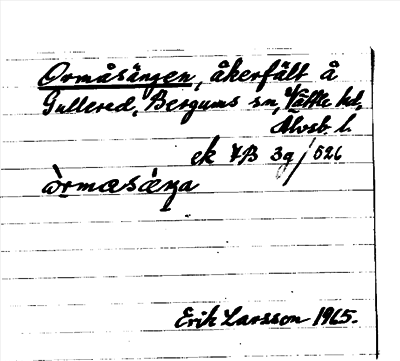 Ormåsängen, åkerfält å
Gullered, Bergums sn, Vättle hd,
Älvsb. l.
ek YB 3g/526
Erik Larsson 1965.